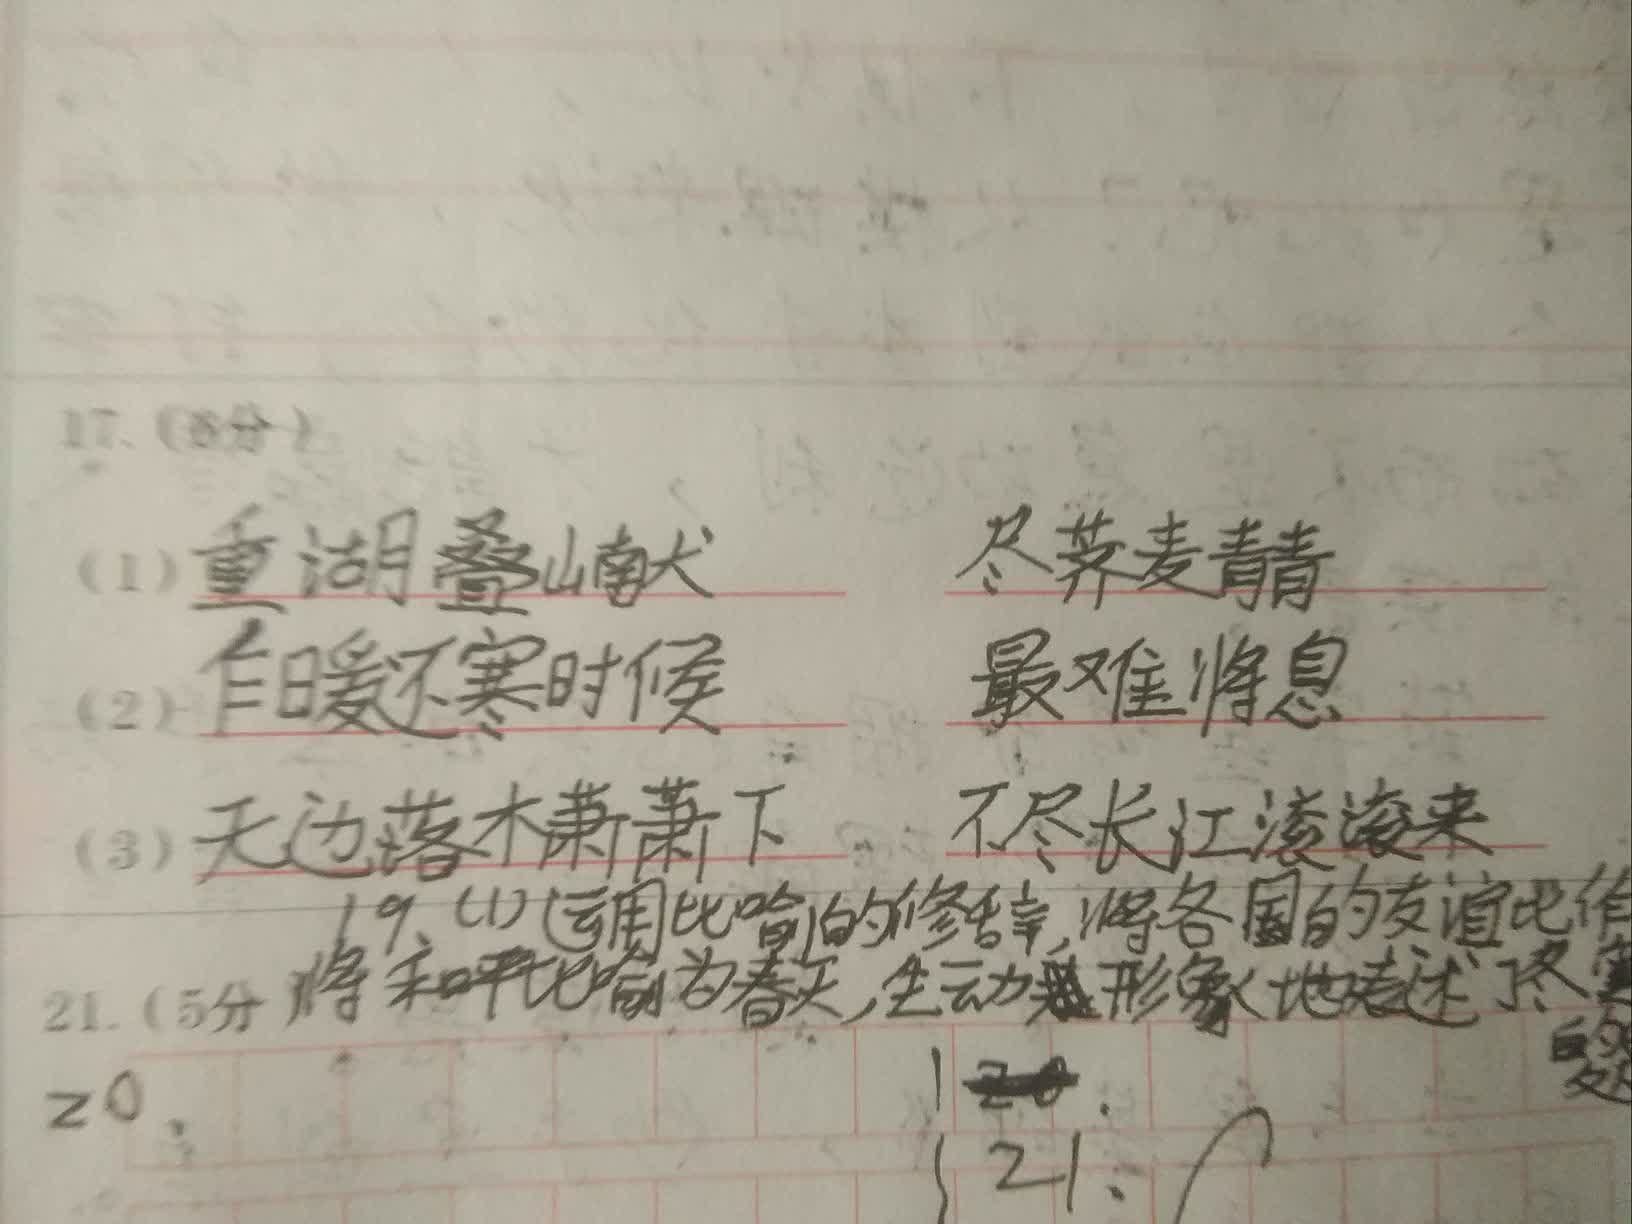 17.（8分）
（1）重湖叠𪩘 尽荠麦青青
（2）乍暖还寒时候 最难将息
（3）天边落木萧萧下 不尽长江滚滚来
19、(1)运用比喻的修辞,将各国的友谊比作
21.（5分）将和平比喻为春天,生动形象地表述了冬
的
20.
21.